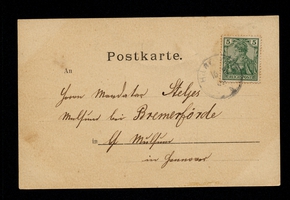 Postkarte.
An
Herrn Mandatar Steljes
Mulsum bei Bremerförde
in G Mulsum
in Hannover
5